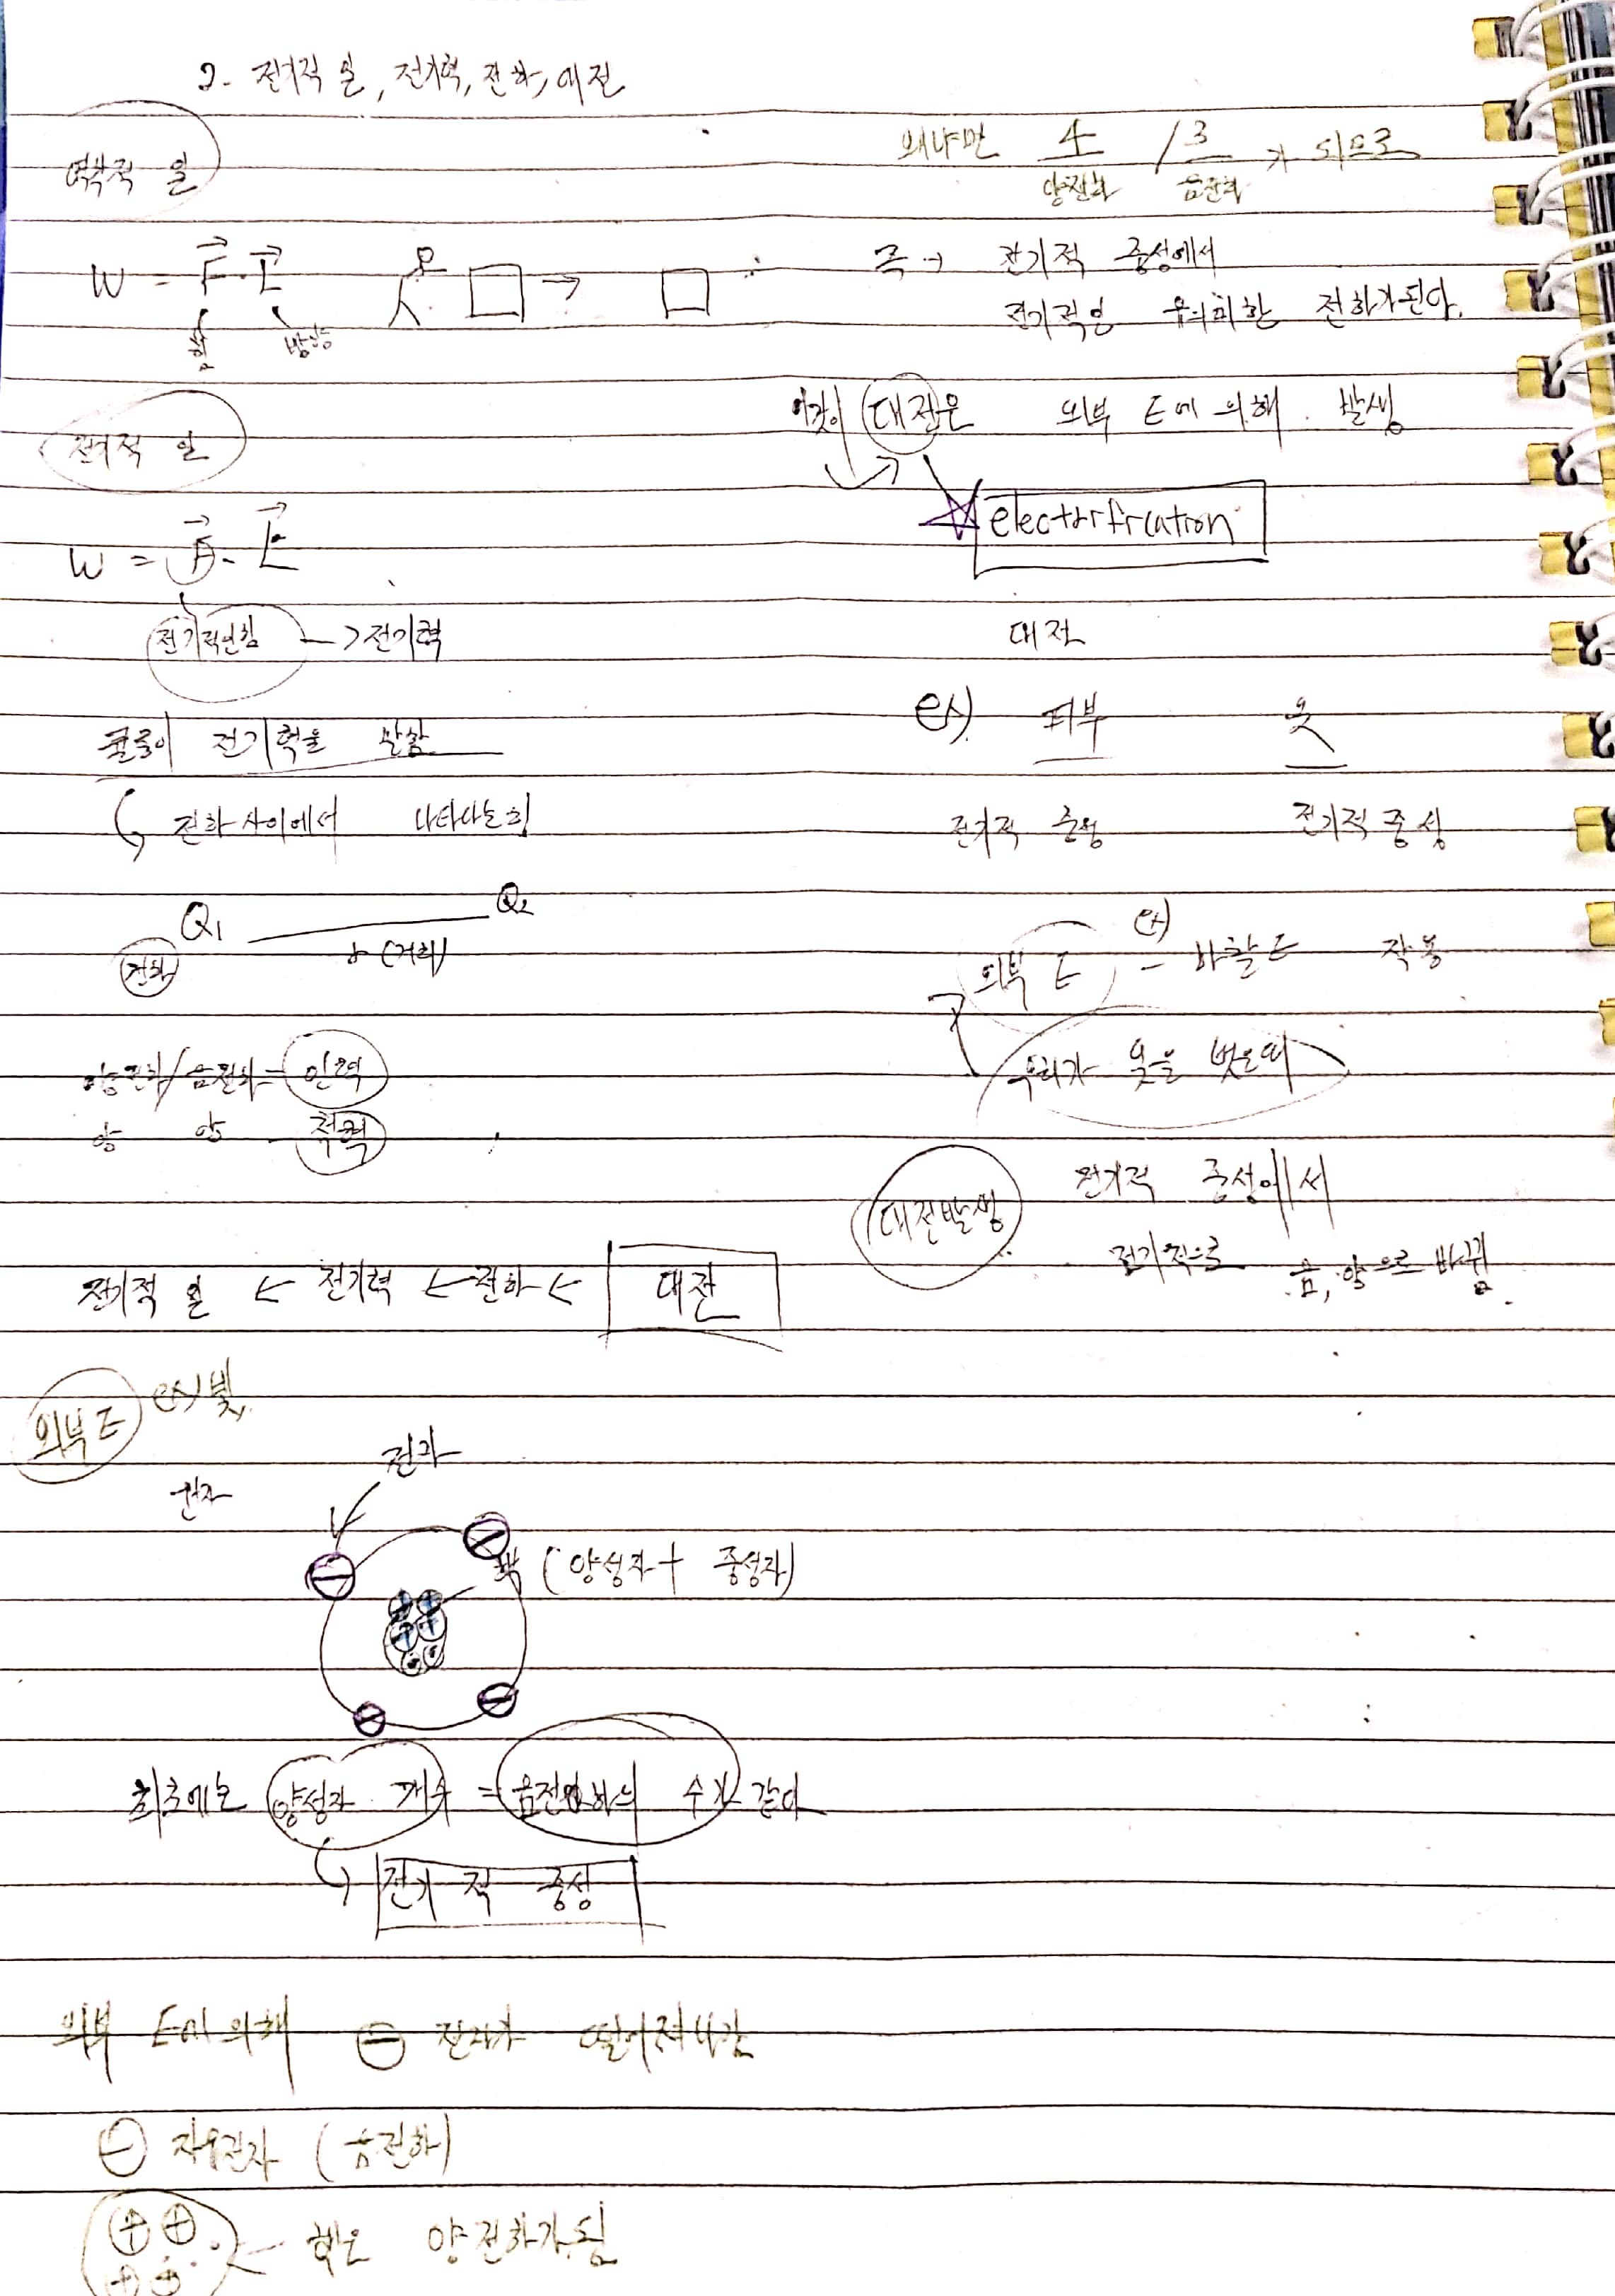 2. 전기적 일, 전기력, 전하, 대전
역학적 일
W = F · L
힘
방향
전기적 일
W = F · L
전기적인 힘 → 전기력
쿨롱이 전기력을 말함
전하 사이에서 나타나는 힘
Q1 Q2
전하 r (거리)
양전하/음전하 = 인력
양 양 척력
전기적 일 ← 전기력 ← 전하 ← 대전
외부 E ex) 빛,
전자
원자
핵 (양성자 + 중성자)
최초에는 양성자 개수 = 음전하의 수가 같다
전기적 중성
외부 E에 의해 ⊖ 전자가 떨어져나감
⊖ 자유전자 (음전하)
⊕ ⊕
⊕ ⊕ 핵은 양전하가 됨
왜냐면 4 / 3 가 되므로
양전하 음전하
즉 → 전기적 중성에서
전기적인 유의미한 전하가 된다.
이것이 대전은 외부 E에 의해 발생
electarfication
대전
ex) 피부 옷
전기적 중성 전기적 중성
외부 E ex) - 마찰 E 작용
우리가 옷을 벗을때
대전발생 전기적 중성에서
전기적으로 음, 양으로 바뀜.